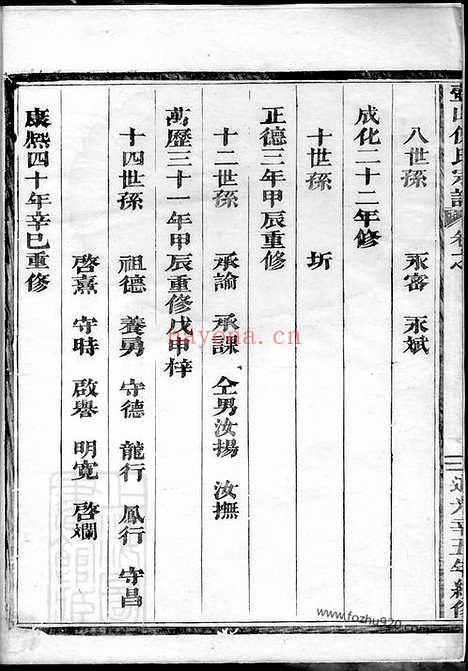 八世孫 永密 永斌
成化二十二年修
十世孫 圻
正德三年甲辰重修
十二世孫 承諭 承課 仝男汝揚 汝撫
萬歷三十一年甲辰重修戊申梓
十四世孫 祖德 養勇 守德 龍行 鳳行 守昌
啓熹 守時 啟譽 明寬 啓斕
康熙四十年辛巳重修
nayona.cn
www.fozhu920.com